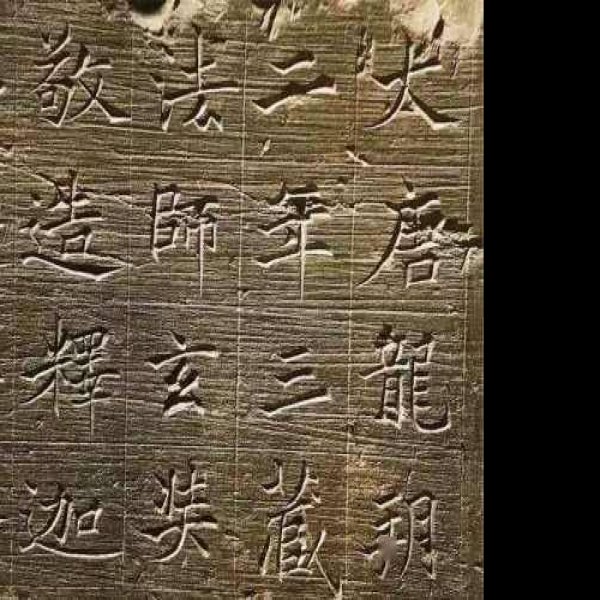 大唐龍朔
二年三藏
法師玄奘
敬造釋迦